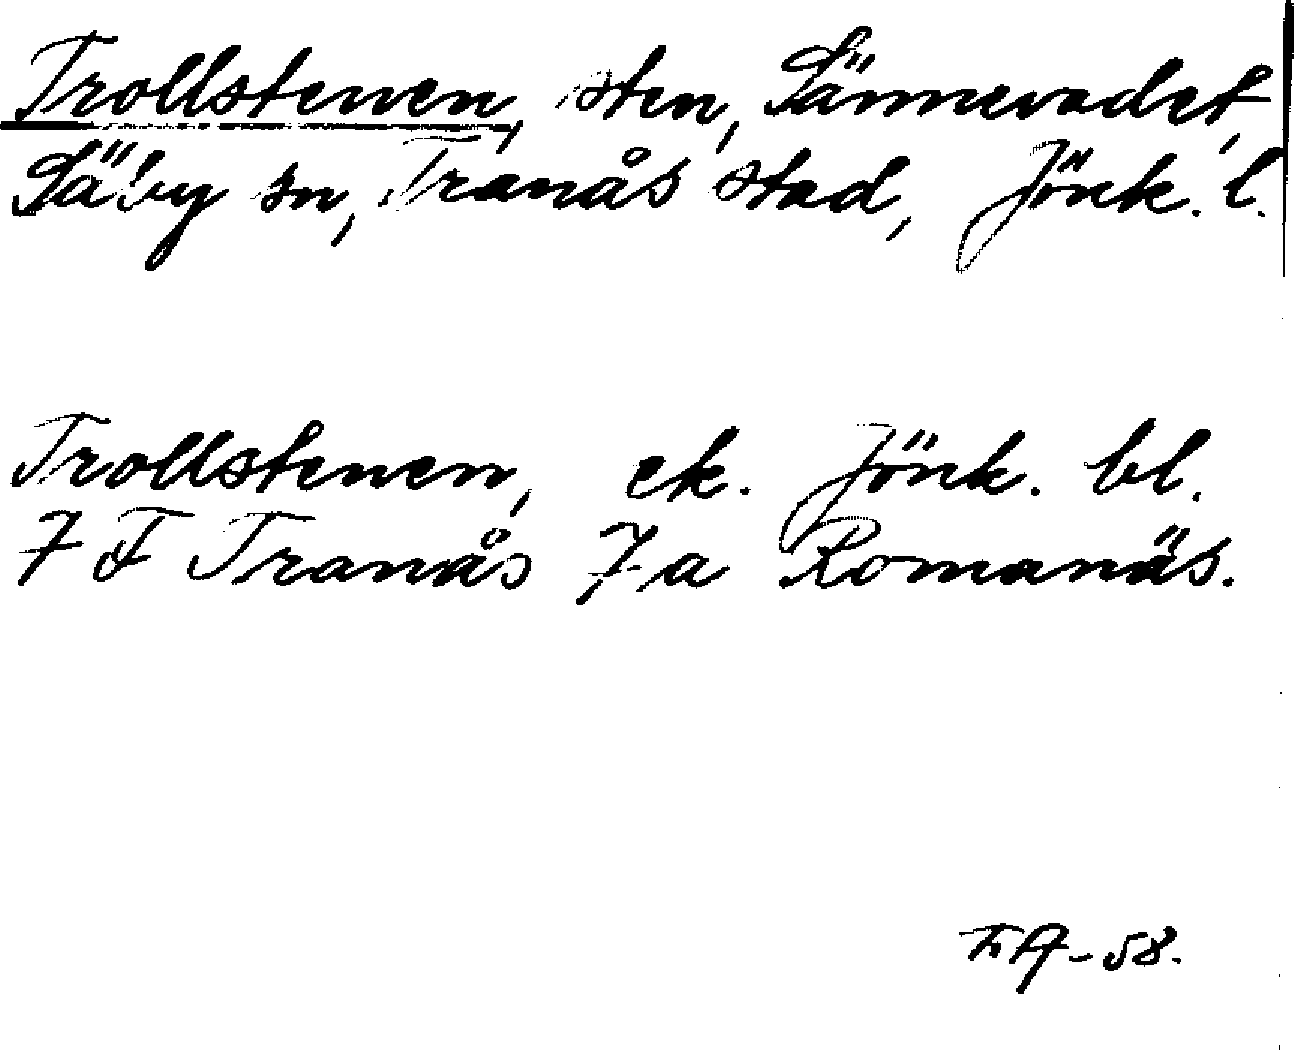 Trollstenen, sten, Sännevadet,
Säby sn, Tranås stad, Jönk. l.
Trollstenen, ek. Jönk. bl.
7 F Tranås 7a Romanäs.
-58.